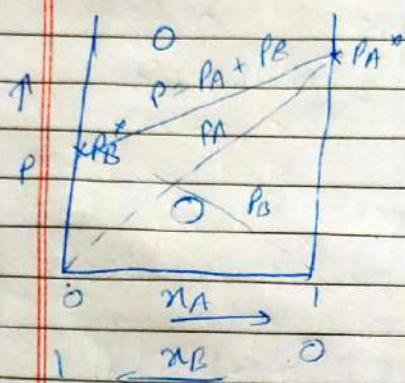 O
P = PA + PB
PA*
↑
PB*
PA
P
O
PB
0 xA 1
→
1 xB 0
←